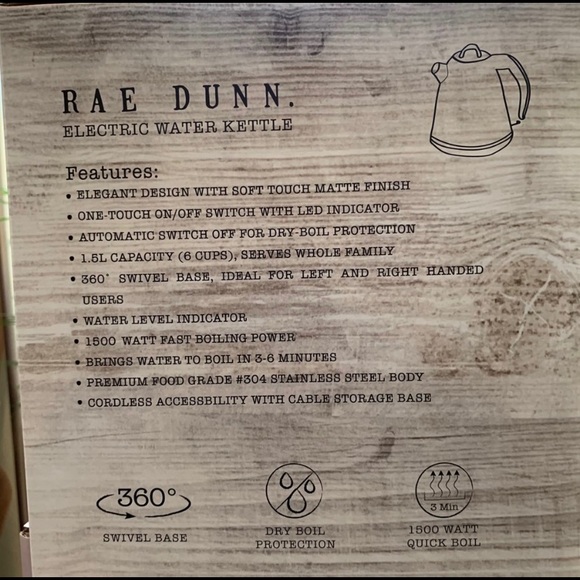 RAE DUNN.
ELECTRIC WATER KETTLE
Features:
• ELEGANT DESIGN WITH SOFT TOUCH MATTE FINISH
• ONE-TOUCH ON/OFF SWITCH WITH LED INDICATOR
• AUTOMATIC SWITCH OFF FOR DRY-BOIL PROTECTION
• 1.5L CAPACITY (6 CUPS), SERVES WHOLE FAMILY
• 360° SWIVEL BASE, IDEAL FOR LEFT AND RIGHT HANDED
USERS
• WATER LEVEL INDICATOR
• 1500 WATT FAST BOILING POWER
• BRINGS WATER TO BOIL IN 3-6 MINUTES
• PREMIUM FOOD GRADE #304 STAINLESS STEEL BODY
• CORDLESS ACCESSBILITY WITH CABLE STORAGE BASE
360°
SWIVEL BASE
DRY BOIL
PROTECTION
3 Min
1500 WATT
QUICK BOIL